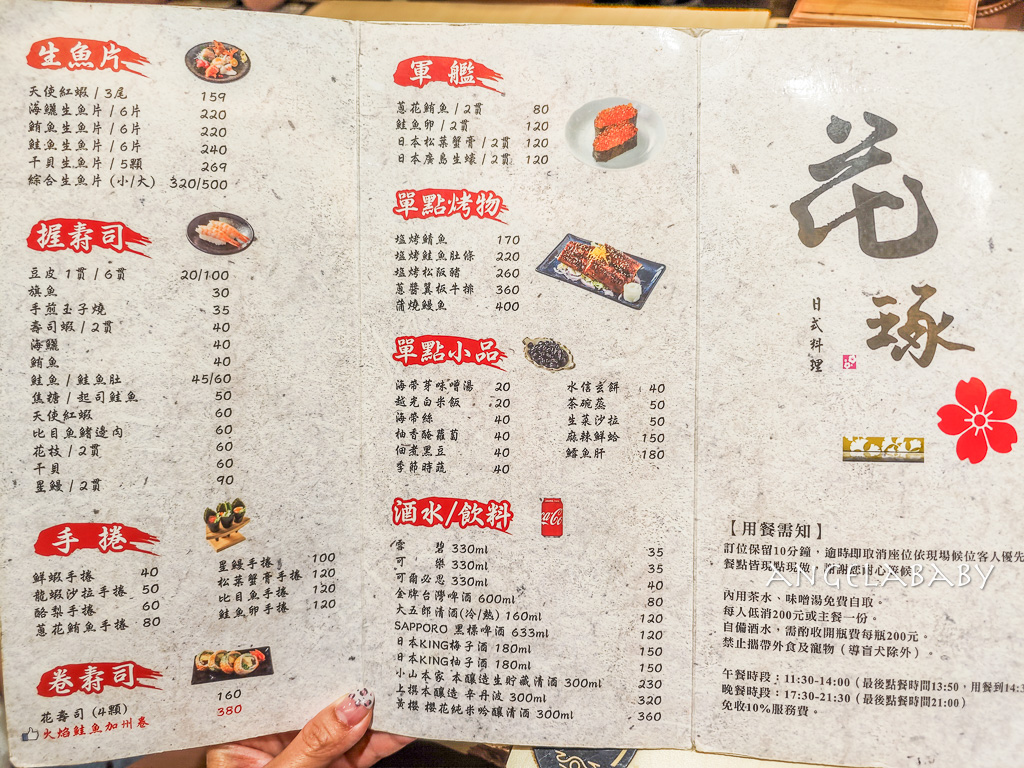 生魚片
天使紅蝦/3尾 159
海鱺生魚片/6片 220
鮪魚生魚片/6片 220
鮭魚生魚片/6片 240
干貝生魚片/5顆 269
綜合生魚片(小/大) 320/500
握壽司
豆皮 1貫/6貫 20/100
旗魚 30
手煎玉子燒 35
壽司蝦/2貫 40
海鱺 40
鮪魚 40
鮭魚/鮭魚肚 45/60
焦糖/起司鮭魚 50
天使紅蝦 60
比目魚鰭邊肉 60
花枝/2貫 60
干貝 60
星鰻/2貫 90
手捲
鮮蝦手捲 40
龍蝦沙拉手捲 50
酪梨手捲 60
蔥花鮪魚手捲 80
星鰻手捲 100
松葉蟹膏手捲 120
比目魚手捲 120
鮭魚卵手捲 120
卷壽司
花壽司(4顆) 160
火焰鮭魚加州卷 380
軍艦
蔥花鮪魚/2貫 80
鮭魚卵/2貫 120
日本松葉蟹膏/2貫 120
日本廣島生蠔/2貫 120
單點烤物
塩烤鯖魚 170
塩烤鮭魚肚條 220
塩烤松阪豬 260
蔥醬翼板牛排 360
蒲燒鰻魚 400
單點小品
海帶芽味噌湯 20
越光白米飯 20
海帶絲 40
柚香醃蘿蔔 40
佃煮黑豆 40
季節時蔬 40
水信玄餅 40
茶碗蒸 50
生菜沙拉 50
麻辣鮮蛤 150
鱈魚肝 180
酒水/飲料
雪 碧 330ml 35
可 樂 330ml 35
可爾必思 330ml 40
金牌台灣啤酒 600ml 80
大五郎清酒(冷/熱) 160ml 120
SAPPORO 黑標啤酒 633ml 120
日本KING梅子酒 180ml 150
日本KING柚子酒 180ml 150
小山本家 本釀造生貯藏清酒 300ml 230
上撰本釀造 辛丹波 300ml 320
黃櫻 櫻花純米吟釀清酒 300ml 360
花
琢
日式料理
【用餐需知】
訂位保留10分鐘，逾時即取消座位依現場候位客人優先
餐點皆現點現做，謝謝您耐心等候
ANGELABABY
內用茶水、味噌湯免費自取。
每人低消200元或主餐一份。
自備酒水，需酌收開瓶費每瓶200元。
禁止攜帶外食及寵物（導盲犬除外）。
午餐時段：11:30-14:00（最後點餐時間13:50，用餐到14:3
晚餐時段：17:30-21:30（最後點餐時間21:00）
免收10%服務費。